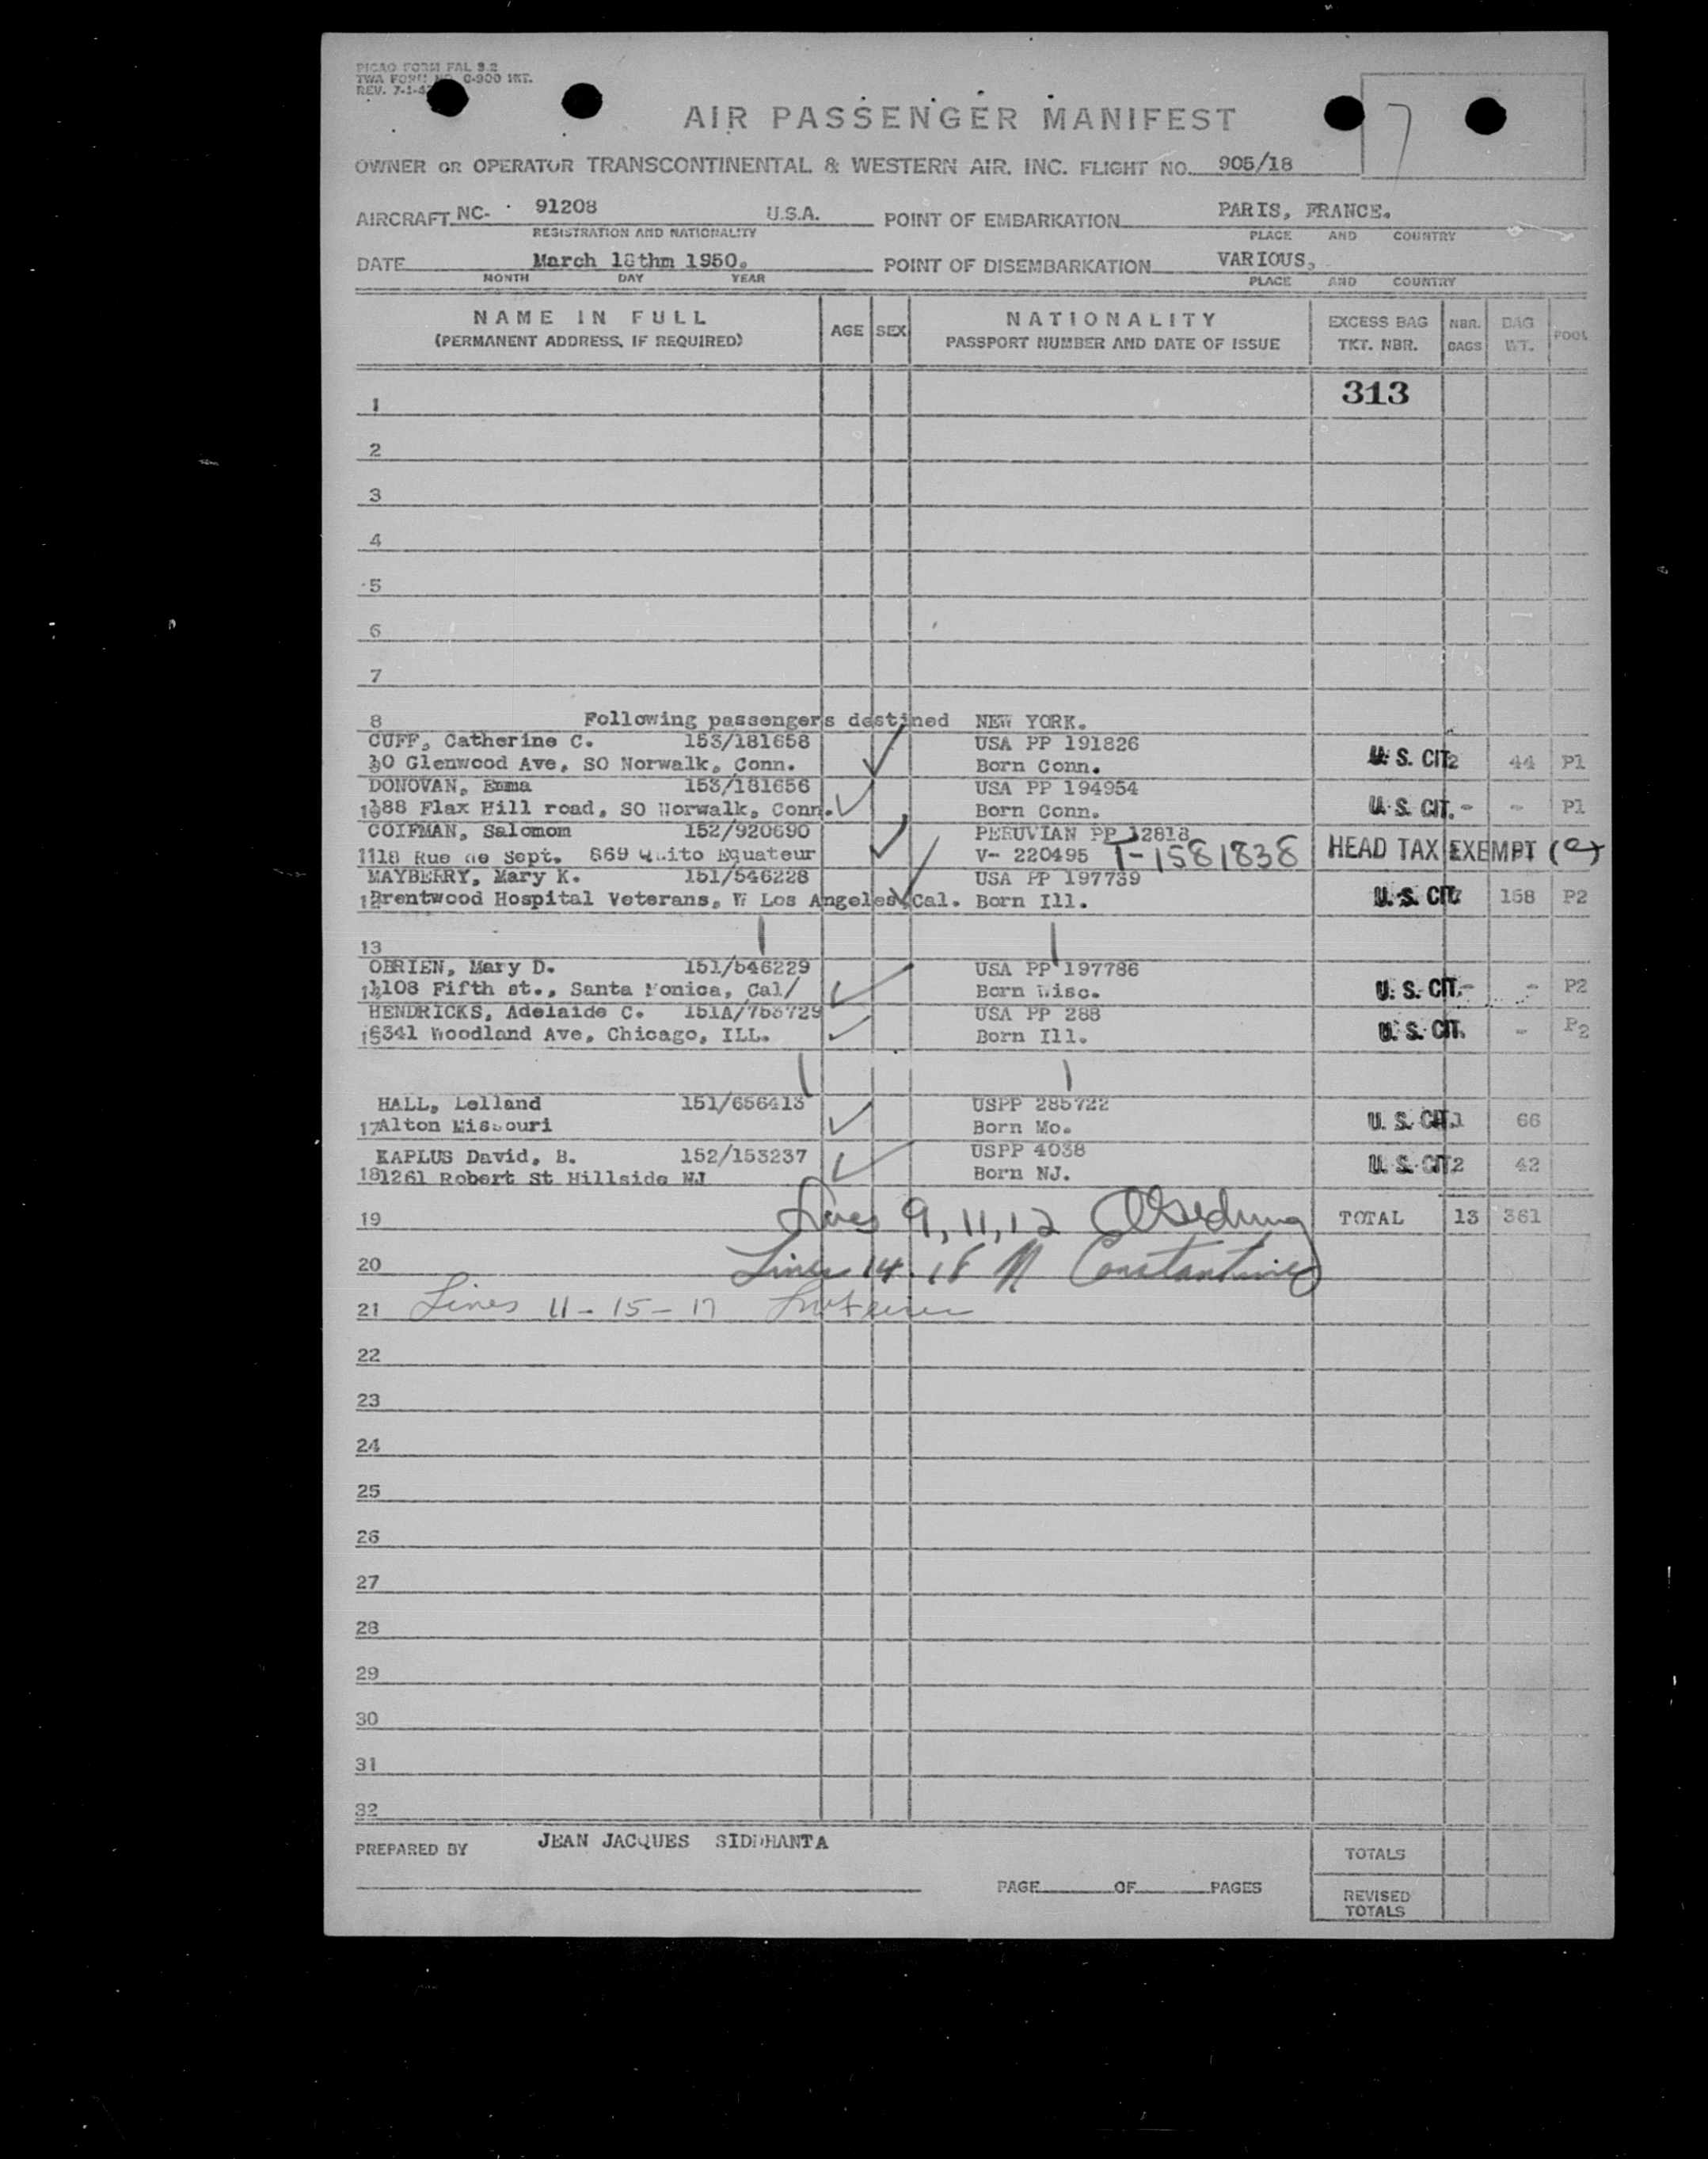 PICAO FORM FAL 3.2
TWA FORM NO. C-900 INT.
REV. 7-1-47
AIR PASSENGER MANIFEST
7
OWNER OR OPERATOR TRANSCONTINENTAL & WESTERN AIR. INC. FLIGHT NO. 905/18
AIRCRAFT NC- 91208 U.S.A. POINT OF EMBARKATION PARIS, FRANCE.
REGISTRATION AND NATIONALITY PLACE AND COUNTRY
DATE March 18thm 1950. POINT OF DISEMBARKATION VARIOUS,
MONTH DAY YEAR PLACE AND COUNTRY
NAME IN FULL AGE SEX NATIONALITY EXCESS BAG NBR. BAG POOL
(PERMANENT ADDRESS, IF REQUIRED) PASSPORT NUMBER AND DATE OF ISSUE TKT. NBR. BAGS WT.
1 313
2
3
4
5
6
7
8 Following passengers destined NEW YORK.
CUFF, Catherine C. 153/181658 USA PP 191826
30 Glenwood Ave, SO Norwalk, Conn. Born Conn. U. S. CIT. 2 44 P1
DONOVAN, Emma 153/181656 USA PP 194954
188 Flax Hill road, SO Norwalk, Conn. Born Conn. U. S. CIT. - - P1
COIFMAN, Salomom 152/920690 PERUVIAN PP 12818
1118 Rue de Sept. 869 Quito Equateur V- 220495 T-1581838 HEAD TAX EXEMPT (c)
MAYBERRY, Mary K. 151/546228 USA PP 197739
12 Brentwood Hospital Veterans, W Los Angeles Cal. Born Ill. U. S. CIT. 7 158 P2
13
OBRIEN, Mary D. 151/546229 USA PP 197786
1108 Fifth st., Santa Monica, Cal/ Born Wisc. U. S. CIT. - - P2
HENDRICKS, Adelaide C. 151A/753729 USA PP 288
15 6341 Woodland Ave, Chicago, ILL. Born Ill. U. S. CIT. - P2
HALL, Lelland 151/656413 USPP 285722
17 Alton Missouri Born Mo. U. S. CIT. 1 66
KAPLUS David, B. 152/153237 USPP 4038
18 1261 Robert St Hillside NJ Born NJ. U. S. CIT. 2 42
19 Lines 9, 11, 12 TOTAL 13 361
20 Lines 14. 18 N Constantine
21 Lines 11 - 15 - 17
22
23
24
25
26
27
28
29
30
31
32
PREPARED BY JEAN JACQUES SIDDHANTA TOTALS
PAGE OF PAGES REVISED TOTALS